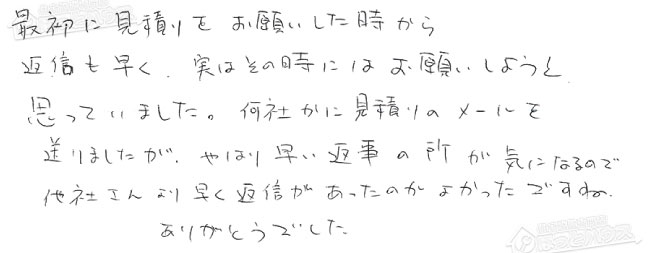 最初に見積りをお願いした時から
返信も早く、実はその時にはお願いしようと
思っていました。何社かに見積りのメールを
送りましたが、やはり早い返事の所が気になるので
他社さんより早く返信があったのがよかったですね。
ありがとうでした